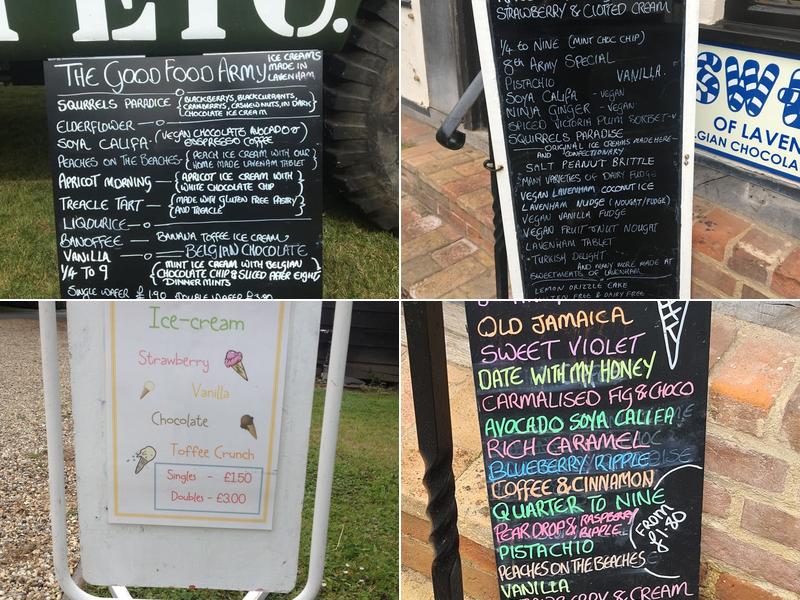 ETO.
THE GOOD FOOD ARMY
ICE CREAMS
MADE IN
LAVENHAM
SQUIRRELS PARADICE
BLACKBERRYS, BLACKCURRANTS,
CRANBERRYS, CASHEWNUTS, IN DARK
CHOCOLATE ICE CREAM
ELDERFLOWER
SOYA CALIFA
VEGAN CHOCOLATE AVOCADO &
ESSPRESSO COFFEE
PEACHES ON THE BEACHES
PEACH ICE CREAM WITH OUR
HOME MADE LAVENHAM TABLET
APRICOT MORNING
APRICOT ICE CREAM WITH
WHITE CHOCOLATE CHIP
TREACLE TART
MADE WITH GLUTEN FREE PASTRY
AND TREACLE
LIQOURICE
BANOFFEE
BANANA TOFFEE ICE CREAM
VANILLA
BELGIAN CHOCOLATE
1/4 TO 9
MINT ICE CREAM WITH BELGIAN
CHOCOLATE CHIP & SLICED AFTER EIGHT
DINNER MINTS
SINGLE WAFER £1.90 DOUBLE WAFER £3.80
STRAWBERRY & CLOTTED CREAM
1/4 TO NINE (MINT CHOC CHIP)
8th ARMY SPECIAL
PISTACHIO VANILLA.
SOYA CALIFA - VEGAN
NINJA GINGER - VEGAN
SPICED VICTORIA PLUM SORBET - V
SQUIRRELS PARADISE
ORIGINAL ICE CREAMS MADE HERE
AND CONFECTIONARY
SALT PEANUT BRITTLE
MANY VARIETIES OF DAIRY FUDGE
VEGAN LAVENHAM COCONUT ICE
LAVENHAM NUDGE (NOUGAT/FUDGE)
VEGAN VANILLA FUDGE
VEGAN FRUIT & NUT NOUGAT
LAVENHAM TABLET
TURKISH DELIGHT
AND MANY MORE MADE AT
SWEETMENTS OF LAVENHAM
LEMON DRIZZLE CAKE
GLUTEN FREE & DAIRY FREE
SW
OF LAVEN
LGIAN CHOCOLA
Ice-cream
Strawberry
Vanilla
Chocolate
Toffee Crunch
Singles - £1.50
Doubles - £3.00
OLD JAMAICA
SWEET VIOLET
DATE WITH MY HONEY
CARMALISED FIG & CHOCO
AVOCADO SOYA CALIFA
RICH CARAMEL
BLUEBERRY RIPPLE
COFFEE & CINNAMON
QUARTER TO NINE
PEAR DROP & RASPBERRY
RIPPLE
FROM
£1.80
PISTACHIO
PEACHES ON THE BEACHES
VANILLA
STRAWBERRY & CREAM